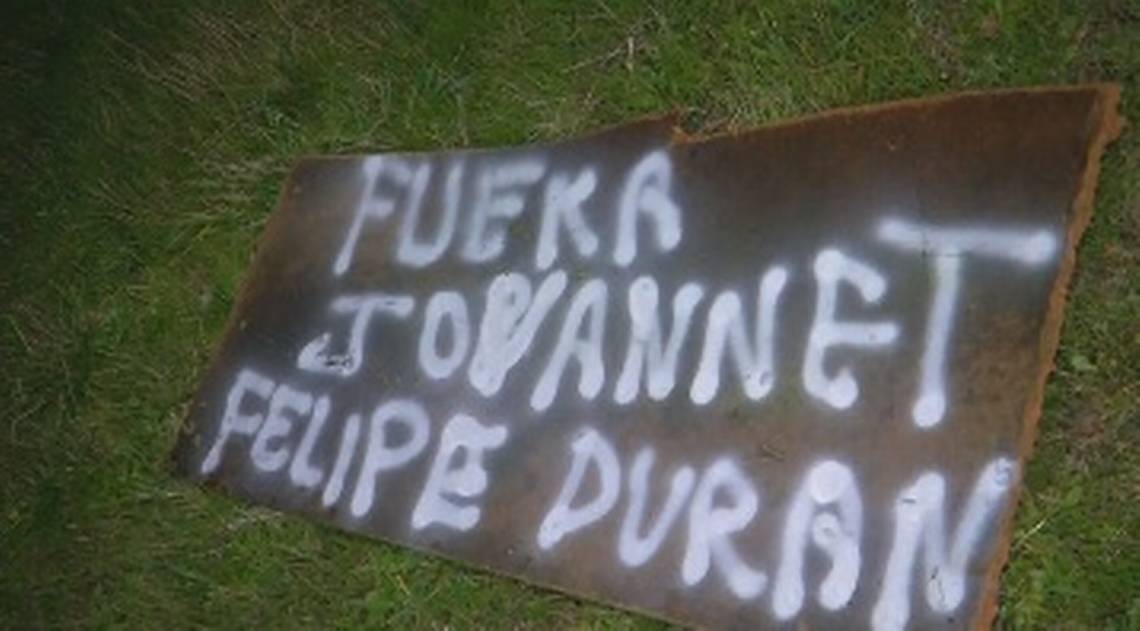 FUERA
JOVANNET
FELIPE DURAN